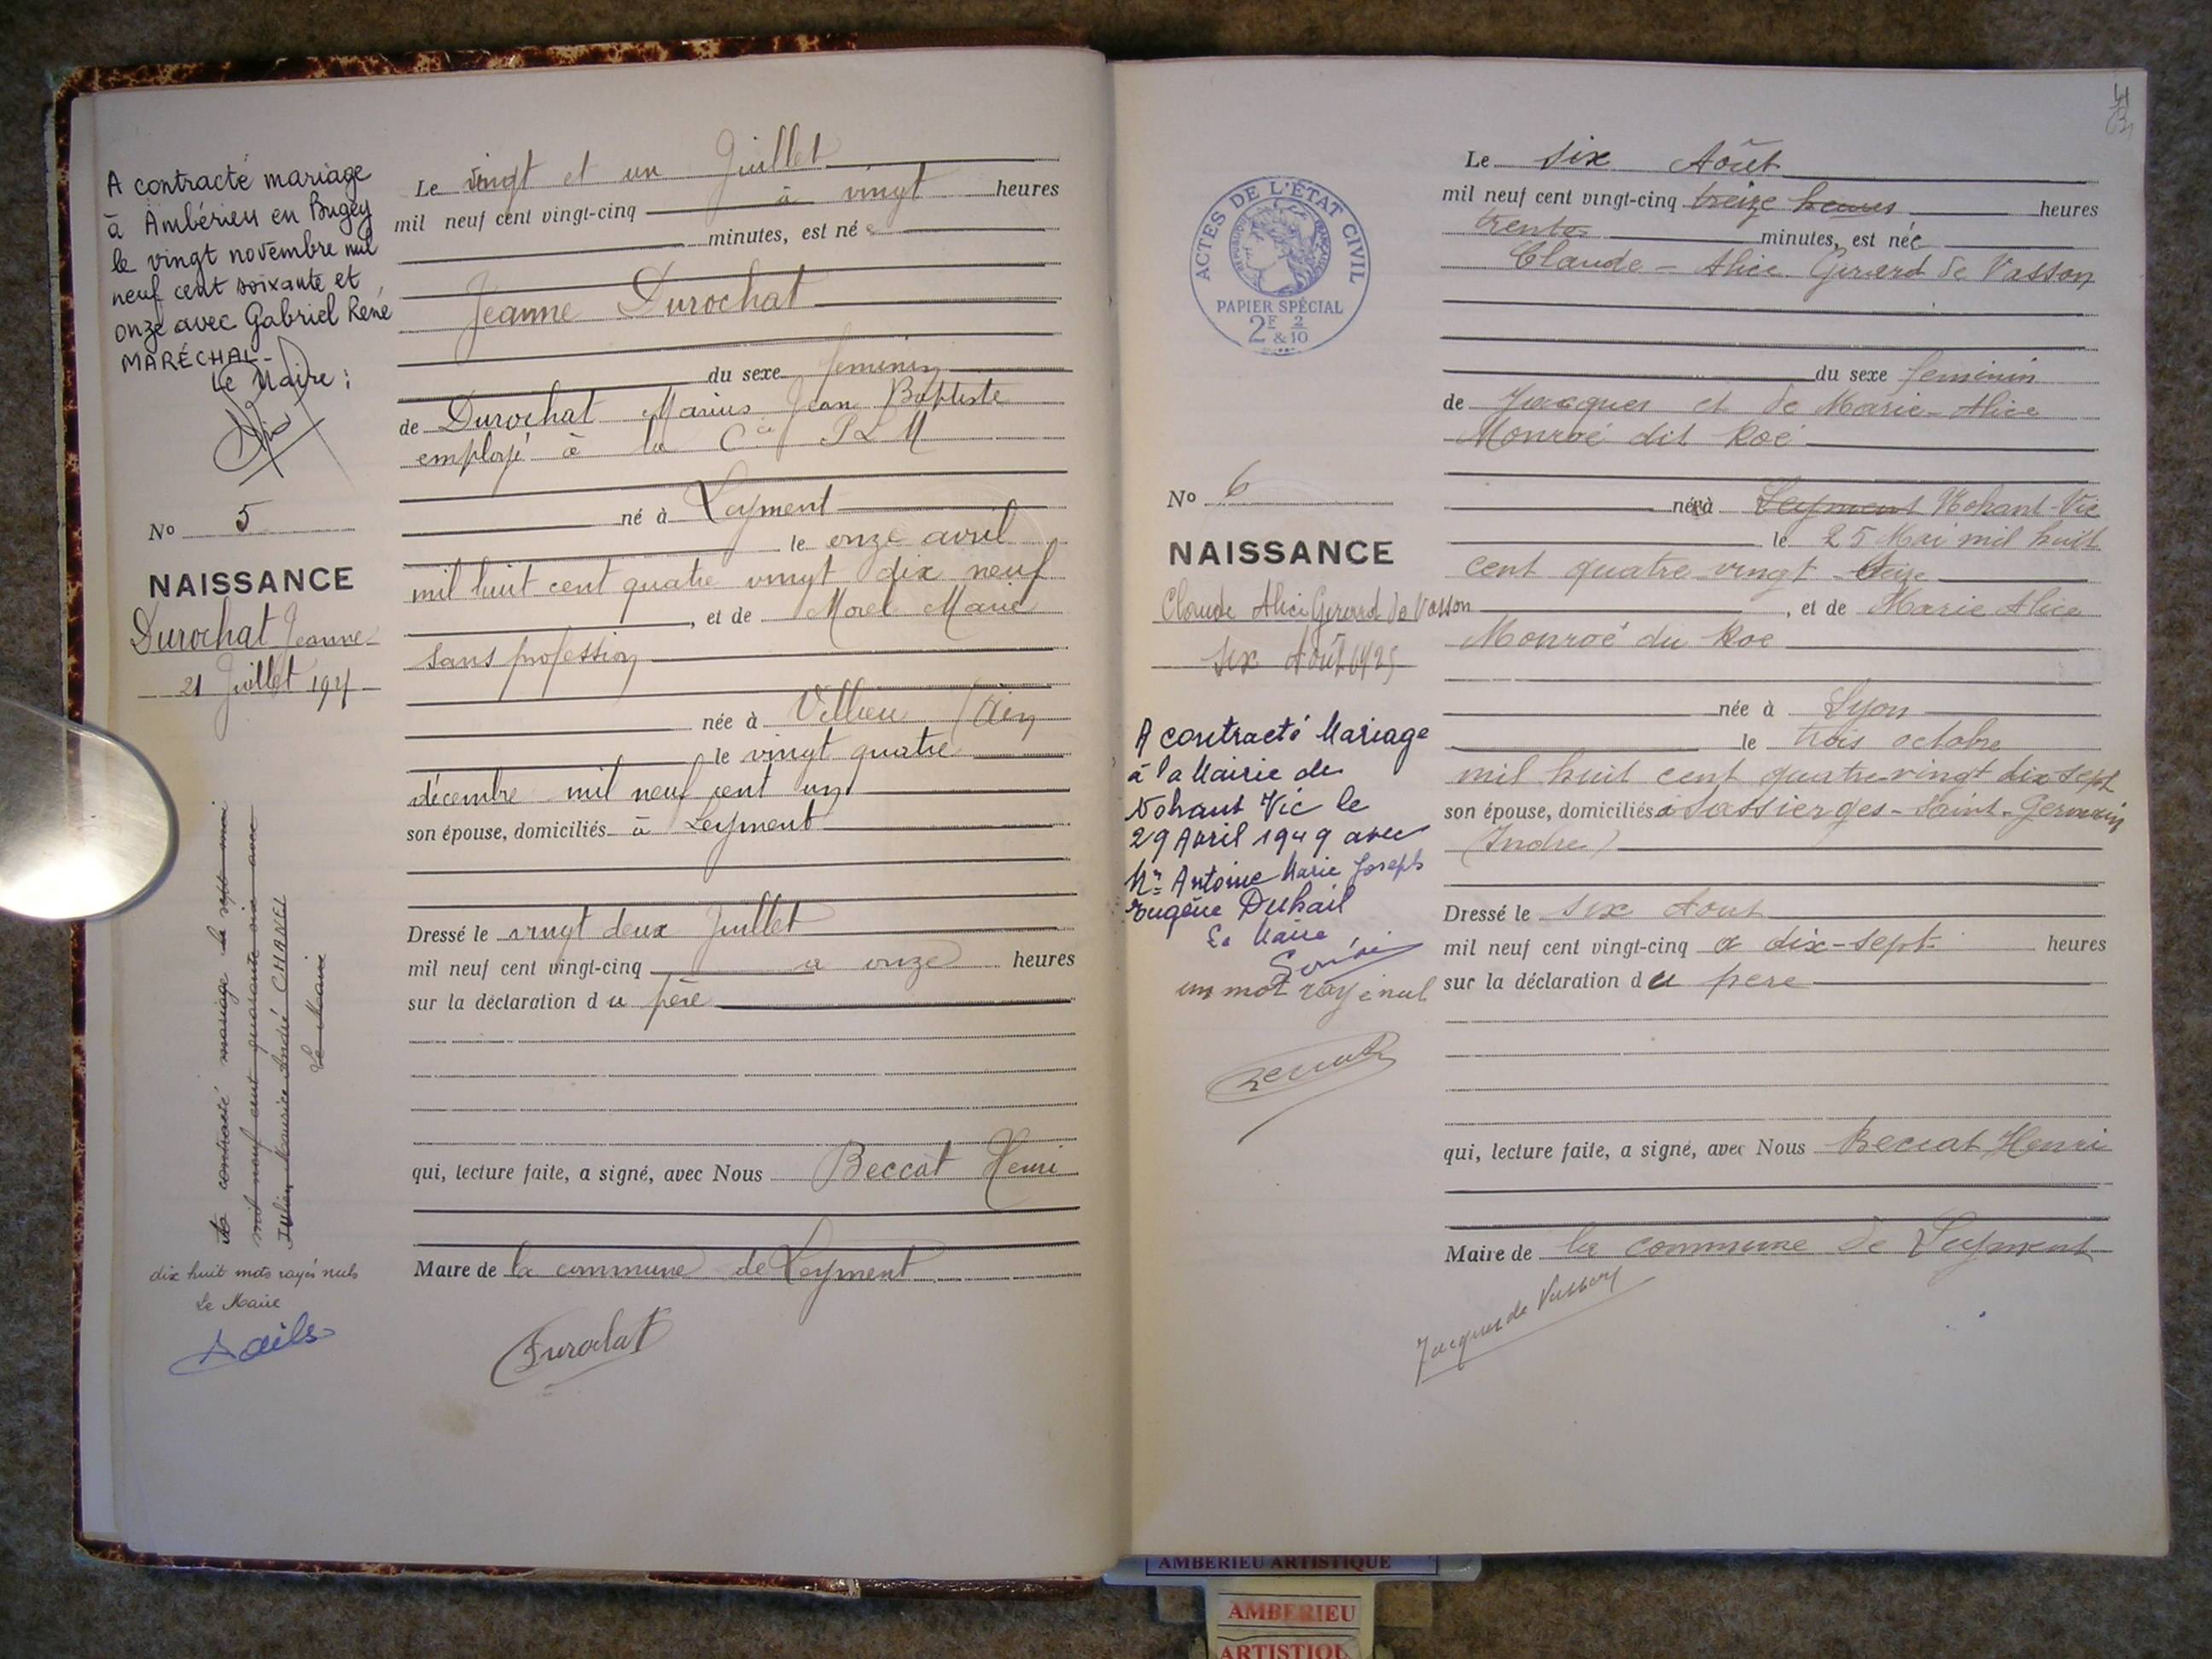 A contracté mariage
à Ambérieu en Bugey
le vingt novembre mil
neuf cent soixante et
onze avec Gabriel René
MARÉCHAL -
Le Maire :
No 5
NAISSANCE
Durochat Jeanne
21 Juillet 1925
A contracté mariage le sept mai
mil neuf cent quarante six avec
Julien Maurice André CHANEL
Le Maire
dix huit mots rayés nuls
Le Maire
Le vingt et un Juillet
mil neuf cent vingt-cinq à vingt heures
minutes, est née
Jeanne Durochat
du sexe féminin
de Durochat Marius Jean Baptiste
employé à la Cie P L M
né à Leyment
le onze avril
mil huit cent quatre vingt dix neuf
, et de Morel Marie
sans profession
née à Villieu (Ain
le vingt quatre
décembre mil neuf cent un
son épouse, domiciliés à Leyment
Dressé le vingt deux Juillet
mil neuf cent vingt-cinq a onze heures
sur la déclaration du père
qui, lecture faite, a signé, avec Nous Beccat Henri
Maire de la commune de Leyment
Durochat
4
ACTES DE L'ÉTAT CIVIL
RÉPUBLIQUE FRANÇAISE
PAPIER SPÉCIAL
2F 2
& 10
No 6
NAISSANCE
Claude Alice Gerard de Vasson
six Août 1925
A contracté Mariage
à la Mairie de
Nohant Vic le
29 Avril 1949 avec
Mr Antoine Marie Joseph
Eugène Duhail
Le Maire
un mot rayé nul
Le six Août
mil neuf cent vingt-cinq treize heures heures
trente minutes, est née
Claude - Alice Gerard de Vasson
du sexe féminin
de Jacques et de Marie-Alice
Monroé dit Roé
né à Leyment Nohant-Vic
le 25 Mai mil huit
cent quatre-vingt seize
, et de Marie Alice
Monroé du Roe
née à Lyon
le trois octobre
mil huit cent quatre-vingt dix sept
son épouse, domiciliés à Sassierges-Saint-Germain
(Indre)
Dressé le six Aout
mil neuf cent vingt-cinq a dix-sept heures
sur la déclaration du pere
qui, lecture faite, a signé, avec Nous Beccat Henri
Maire de la commune de Leyment
Jacques de Vasson
AMBERIEU ARTISTIQUE
AMBERIEU
ARTISTIQU